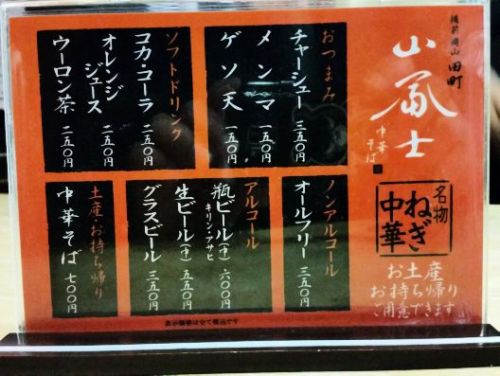 備前岡山 田町
山冨士
中華そば
名物
ねぎ
中華
お土産
お持ち帰り
ご用意できます
おつまみ
チャーシュー 三五〇円
メンマ 一五〇円
ゲソ天 一五〇円
ソフトドリンク
コカ・コーラ 二五〇円
オレンジ
ジュース 二五〇円
ウーロン茶 二五〇円
ノンアルコール
オールフリー 三五〇円
アルコール
瓶ビール(中) 六〇〇円
キリン・アサヒ
生ビール(中) 五五〇円
グラスビール 三五〇円
土産・お持ち帰り
中華そば 七〇〇円
表示価格は全て税込です